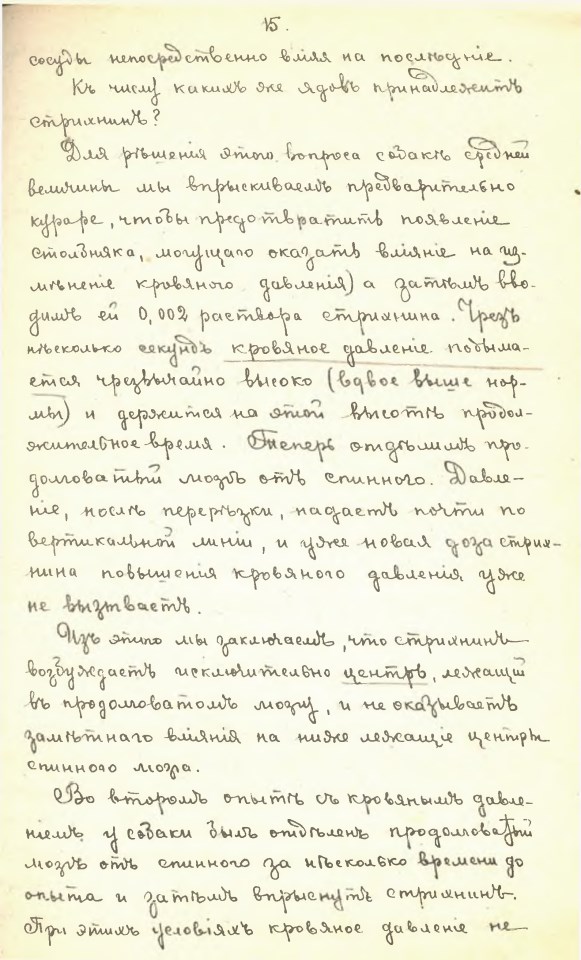 15.
сосуды непосредственно вліяя на послѣдніе.
Къ числу какихъ же ядовъ принадлежитъ
стрихнинъ?
Для рѣшенія этого вопроса собакѣ средней
величины мы впрыскиваемъ предварительно
кураре, чтобы предотвратить появленіе
столбняка, могущаго оказать вліяніе на из-
мѣненіе кровяного давленія) а затѣмъ вво-
димъ ей 0,002 раствора стрихнина. Чрезъ
нѣсколько секундъ кровяное давленіе подыма-
ется чрезвычайно высоко (вдвое выше нор-
мы) и держится на этой высотѣ продол-
жительное время. Теперь отдѣлимъ про-
долговатый мозгъ отъ спинного. Давле-
ніе, послѣ перерѣзки, падаетъ почти по
вертикальной линіи, и уже новая доза стрих-
нина повышенія кровяного давленія уже
не вызываетъ.
Изъ этого мы заключаемъ, что стрихнинъ
возбуждаетъ исключительно центръ, лежащій
въ продолговатомъ мозгу, и не оказываетъ
замѣтнаго вліянія на ниже лежащіе центры
спинного мозга.
Во второмъ опытѣ съ кровянымъ давле-
ніемъ у собаки былъ отдѣленъ продолговатый
мозгъ отъ спинного за нѣсколько времени до
опыта и затѣмъ впрыснутъ стрихнинъ.
При этихъ условіяхъ кровяное давленіе не